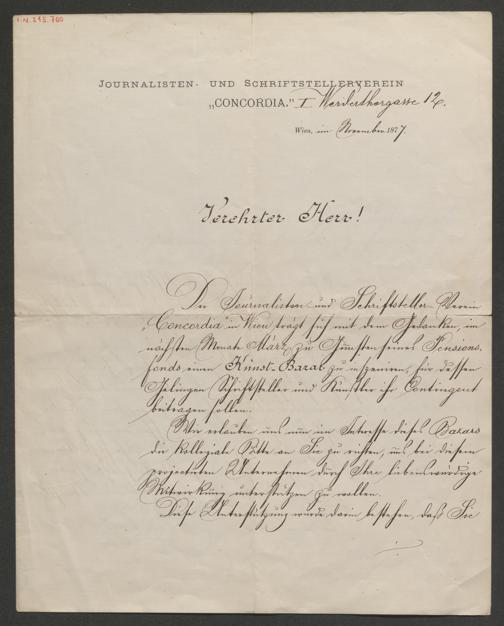 I.N. 248.700
JOURNALISTEN- UND SCHRIFTSTELLERVEREIN
„CONCORDIA." I Werderthorgasse 12.
Wien, im November 1877
Verehrter Herr!
Der Journalisten- und Schriftsteller-Verein
„Concordia" in Wien trägt sich mit dem Gedanken, im
nächsten Monate März zu Gunsten seines Pensions-
fonds einen Kunst-Bazar zu inszeniren, für dessen
Gelingen Schriftsteller und Künstler ihr Contingent
beitragen sollen.
Wir erlauben uns nun im Interesse dieses Bazars
die kollegiale Bitte an Sie zu richten, uns bei diesem
projectirten Unternehmen durch Ihre liebenswürdige
Mitwirkung unterstützen zu wollen.
Diese Unterstützung würde darin bestehen, daß Sie